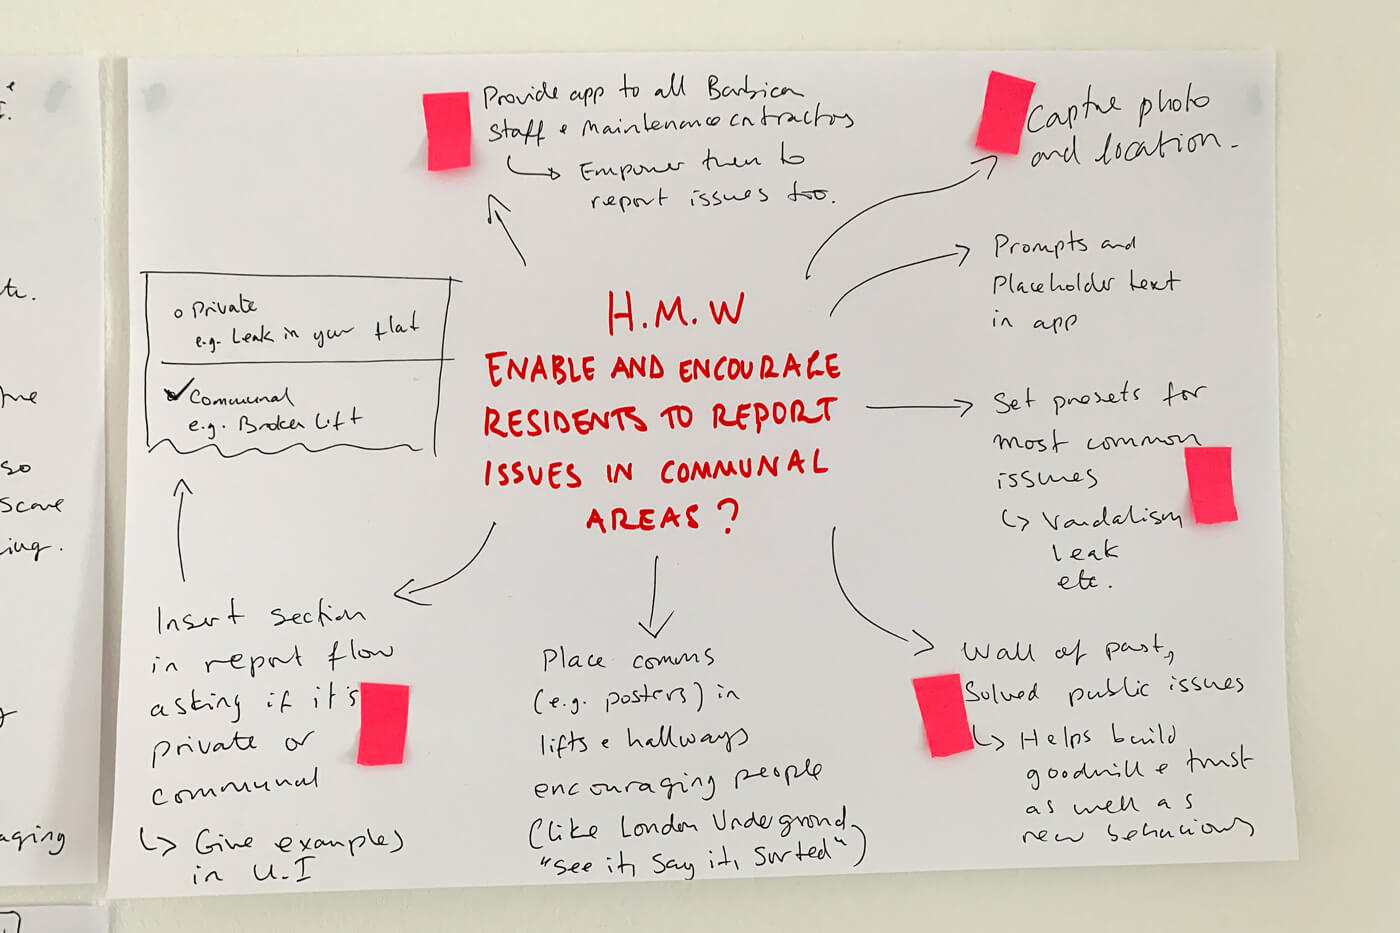 H.M.W
ENABLE AND ENCOURAGE
RESIDENTS TO REPORT
ISSUES IN COMMUNAL
AREAS?
Provide app to all Barbican
staff & maintenance contractors
↳ Empower them to
report issues too.
Capture photo
and location.
Prompts and
Placeholder text
in app
Set presets for
most common
issues
↳ Vandalism
leak
etc.
Wall of past,
Solved public issues
↳ Helps build
goodwill & trust
as well as
new behaviours
Place comms
(e.g. posters) in
lifts & hallways
encouraging people
(like London Underground,
"See it, Say it, Sorted")
Insert section
in report flow
asking if it's
private or
communal
↳ Give examples
in U.I
Private
e.g. Leak in your flat
✓ Communal
e.g. Broken Lift
I.
te.
so
ing.
aging